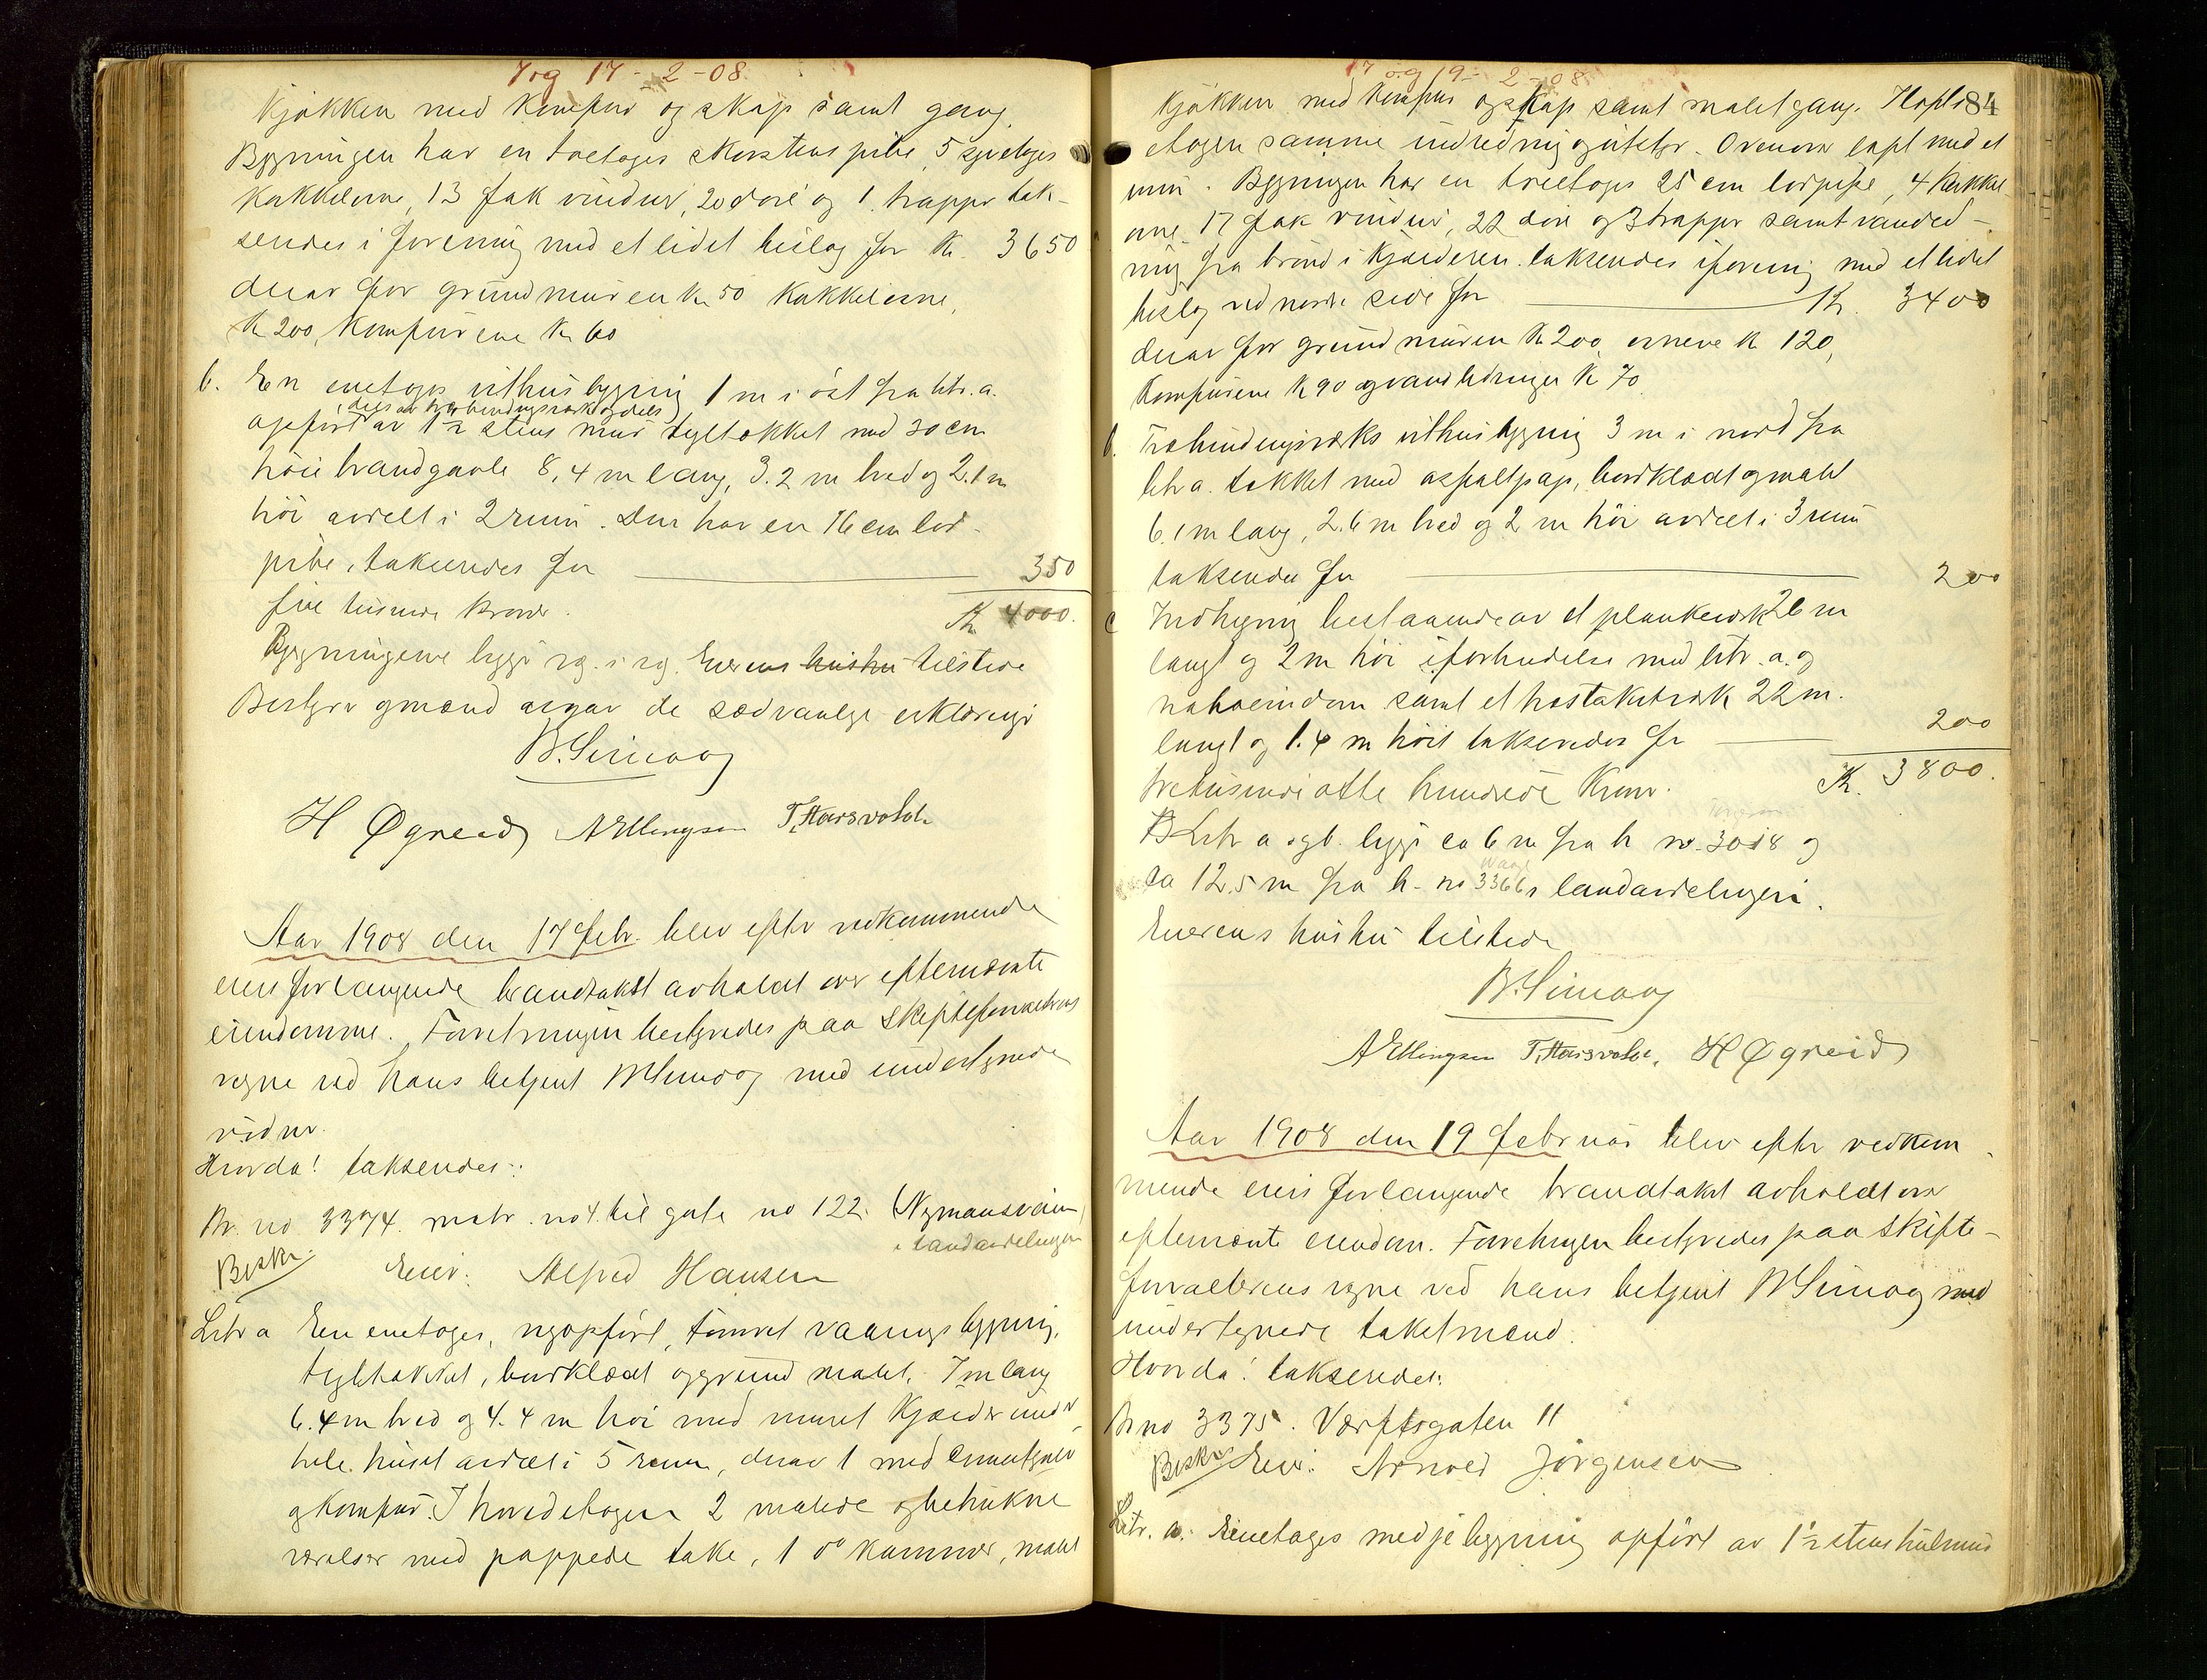 7 og 17-2-08
Kjøkken med komfur og skap samt gang.
Bygningen har en toetages skorstens pibe, 5 syvetages
kakkelovne, 13 fak vinduer, 20 döre og 1 trappe tak-
seredes i forening med et lidet bislag for Kr. 3650
derav for grundmuren Kr 50 Kakkelovne,
Kr 200, Komfurene Kr 60
b. En enetages uthusbygning 1 m i öst fra litr. a.
(dels av træbindingsværk og dels)
opfört av 1½ stens mur tegltækket med 30 cm
höie brandgavle 8,4 m lang, 3.2 m bred og 2.1 m
höi avdelt i 2 rum. Den har en 16 cm lod-
pibe, takseredes for 350
fire tusinde kroner. Kr 4000.
Bygningene ligger rg. i rg. Eierens hustru tilstede
Bestyrer og mænd avgav de sædvanlige erklæringer
B. Simoog
H Øgreid AEllingsen T. Haarsvold.
Aar 1908 den 17 febr. blev efter vedkommende
eiers forlangende brandtakst avholdt over efternævnte
eiendomme. Forretningen bestyredes paa skifteforvalterens
vegne ved hans betjent B Simoog med undertegnede
vidner.
Hvorda! takseredes:
Br. no 3374. matr. no 4. til gate no 122. (Nymansveien
i landavdelingen
Beskr. Eier: Alfred Hansen
Litr a En enetages, nyopfört, tömret vaaningsbygning,
tegltækket, bordklædt og grund malet, 7 m lang
6.4 m bred og 4.4 m höi med muret kjælder under
hele huset avdelt i 5 rum, derav 1 med cementgulv
og komfur. I hovedetagen 2 malede og betrukne
værelser med pappede take, 1 do kammer, malet
17 og 19-2-08
kjökken med komfur og skap samt malet gang. I lofts 84
etagen samme indredning og utstyr. Ovenover loft med et
rum. Bygningen har en treetages 25 cm lodpipe, 4 kakkel
ovne 17 fak vinduer, 22 döre og 3 trapper samt vandled-
ning fra brönd i kjælderen takseredes i forening med et lidet
bislag ved nordre side for Kr. 3400
derav for grundmuren Kr 200, ovnene Kr 120,
Komfurene Kr 90 og vandledningen Kr 70
b. Træbindingsværks uthusbygning 3 m i nord fra
litr a. tækket med asfaltpap, bordklædt og malet
6.1 m lang, 2.6 m bred og 2 m höi avdelt i 3 rum
takseredes for 200
c Indhegning bestaaende av et plankeværk 26 m
langt og 2 m höi i forbindelse med litr. a. og
naboeiendom samt et host stakitværk 22 m.
langt og 1.4 m höit takseredes for 200
tretusinde otte hundrede Kroner. Kr. 3800.
Litr a og b. ligger ca 6 m fra br no. 3018 og
ca 12.5 m fra br. no 3366 i landavdelingen.
Eierens hustru tilstede
B. Simoog
AEllingsen T. Haarsvold. H Øgreid
Aar 1908 den 19 februar blev efter vedkom
mende eiers forlangende brandtakst avholdt over
efternævnte eiendom. Forretningen bestyredes paa skifte-
forvalterens vegne ved hans betjent B Simoog med
undertegnede takstmænd.
Hvorda! takseredes:
Br no 3375. Værftsgaten 11
Beskr. Eier: Arnold Jörgensen
Litr. a. Enetages medje bygning opfört av 1½ stens hulmur